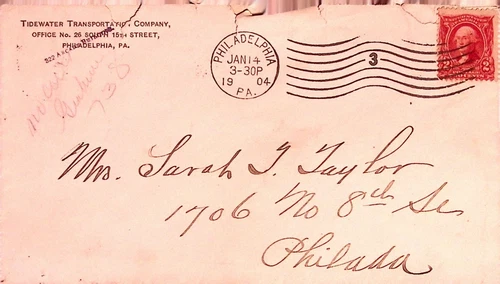 TIDEWATER TRANSPORTATION COMPANY,
OFFICE No. 26 SOUTH 15TH STREET,
PHILADELPHIA, PA.
738
PHILADELPHIA
JAN 14
3-30P
19 04
PA.
3
2 2
Mrs. Sarah T. Taylor
1706 No 8th St
Philada